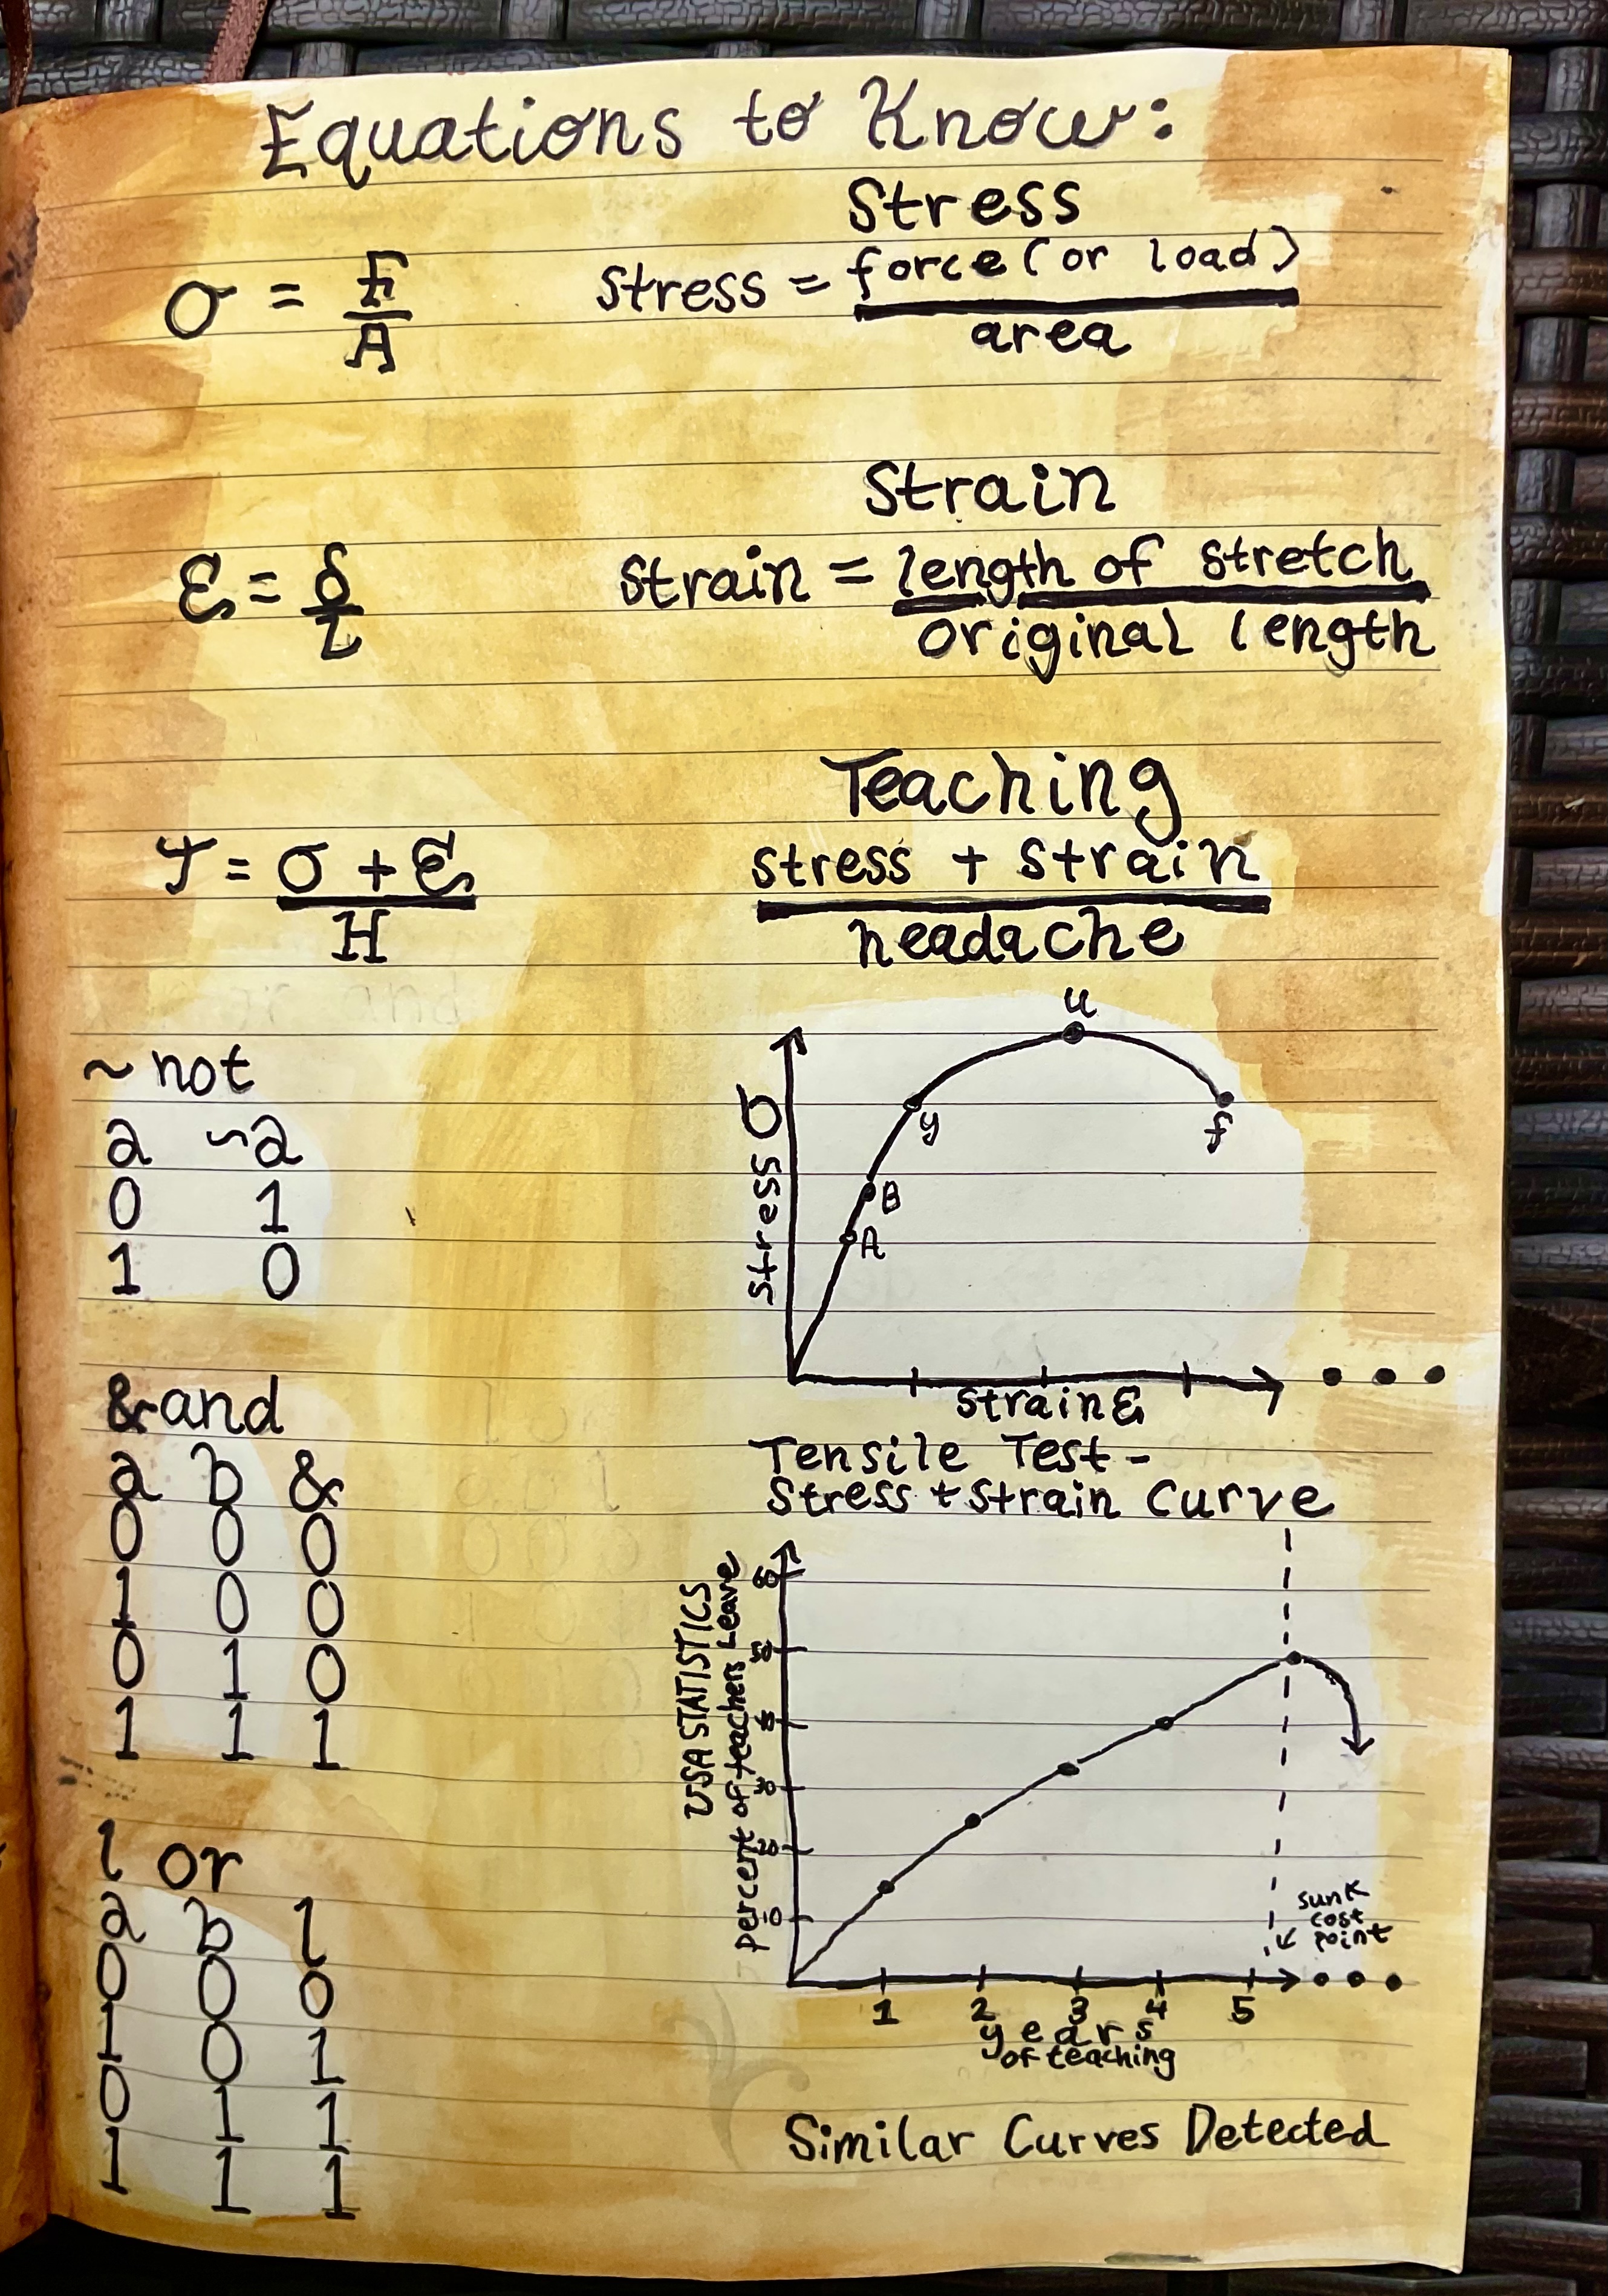 Equations to Know:
Stress
σ = F/A
stress = force (or load)
area
Strain
ε = δ/L
strain = length of stretch
original length
Teaching
T = σ + ε
H
stress + strain
headache
~ not
a ~a
0 1
1 0
& and
a b &
0 0 0
1 0 0
0 1 0
1 1 1
l or
a b l
0 0 0
1 0 1
0 1 1
1 1 1
stress σ
u
y
f
B
A
strain ε
Tensile Test -
Stress + Strain Curve
USA STATISTICS
percent of teachers leave
60
50
40
30
20
10
sunk
cost
point
1 2 3 4 5
years
of teaching
Similar Curves Detected